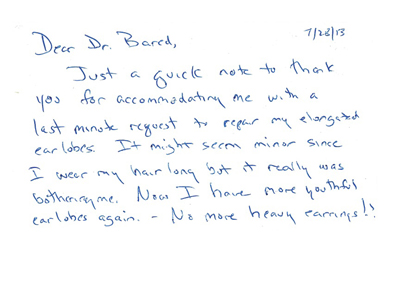 7/28/13
Dear Dr. Bared,
Just a quick note to thank
you for accommodating me with a
last minute request to repair my elongated
earlobes. It might seem minor since
I wear my hair long but it really was
bothering me. Now I have more youthful
earlobes again. - No more heavy earrings!!